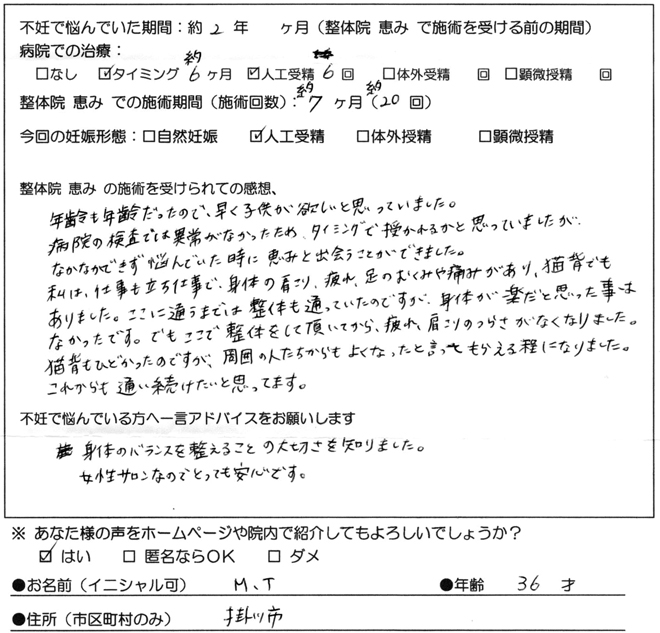 不妊で悩んでいた期間：約 2 年　ヶ月（整体院 恵み で施術を受ける前の期間）
病院での治療：
□なし ☑タイミング 約6ヶ月 ☑人工受精 6回 □体外受精　回 □顕微授精　回
整体院 恵み での施術期間（施術回数）：約7ヶ月（約20 回）
今回の妊娠形態：□自然妊娠 ☑人工受精 □体外授精 □顕微授精
整体院 恵み の施術を受けられての感想、
年齢も年齢だったので、早く子供が欲しいと思っていました。
病院の検査では異常がなかったため、タイミングで授かれるかと思っていましたが、
なかなかできず悩んでいた時に恵みと出会うことができました。
私は、仕事も立ち仕事で、身体の肩こり、疲れ、足のむくみや痛みがあり、猫背でも
ありました。ここに通うまでは整体も通っていたのですが、身体が楽だと思った事は
なかったです。でもここで整体をして頂いてから、疲れ、肩こりのつらさがなくなりました。
猫背もひどかったのですが、周囲の人たちからもよくなったと言ってもらえる程になりました。
これからも通い続けたいと思ってます。
不妊で悩んでいる方へ一言アドバイスをお願いします
身体のバランスを整えることの大切さを知りました。
女性サロンなのでとっても安心です。
※ あなた様の声をホームページや院内で紹介してもよろしいでしょうか？
☑ はい　□ 匿名ならOK　□ ダメ
●お名前（イニシャル可）　M、T　●年齢　36　才
●住所（市区町村のみ）　掛川市